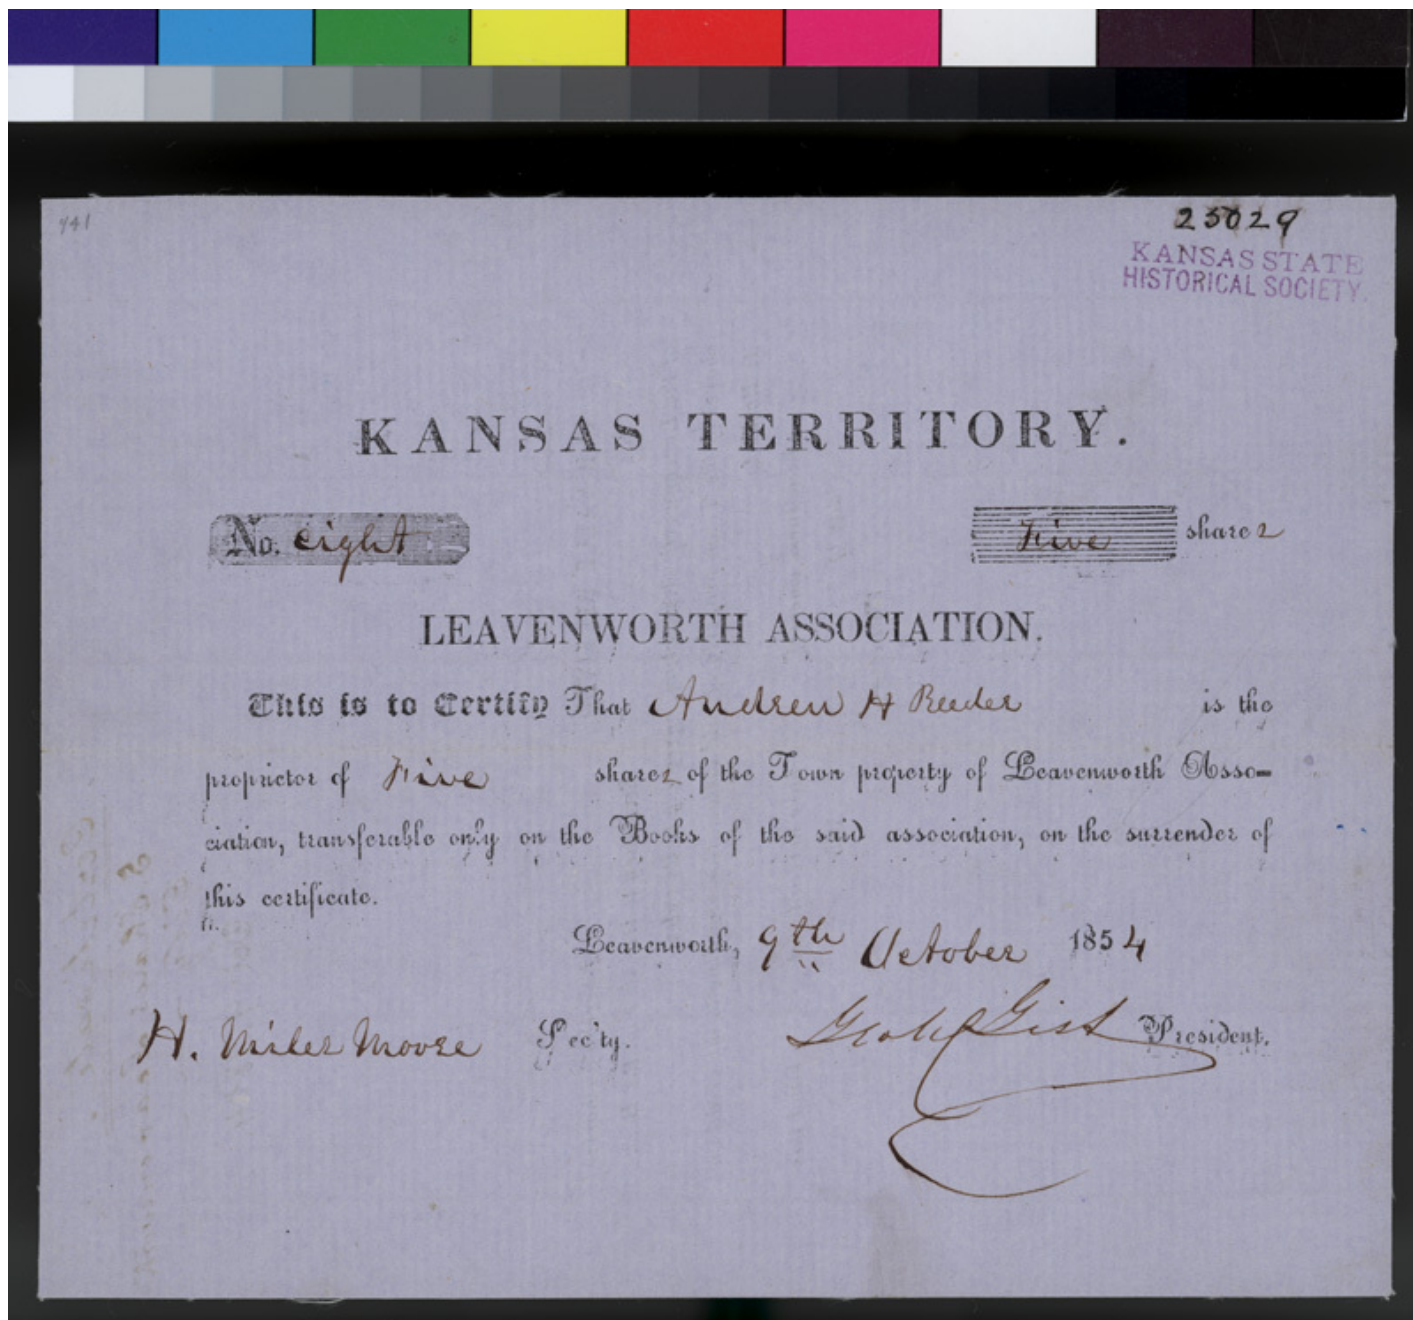 441
25029
KANSAS STATE
HISTORICAL SOCIETY.
KANSAS TERRITORY.
No. eight Five shares
LEAVENWORTH ASSOCIATION.
This is to Certify That Andrew H Reeder is the
proprietor of Five shares of the Town property of Leavenworth Asso-
ciation, transferable only on the Books of the said association, on the surrender of
this certificate.
Leavenworth, 9th October 1854
H. Miles Moore Sec'ty. Geo H Gist President.